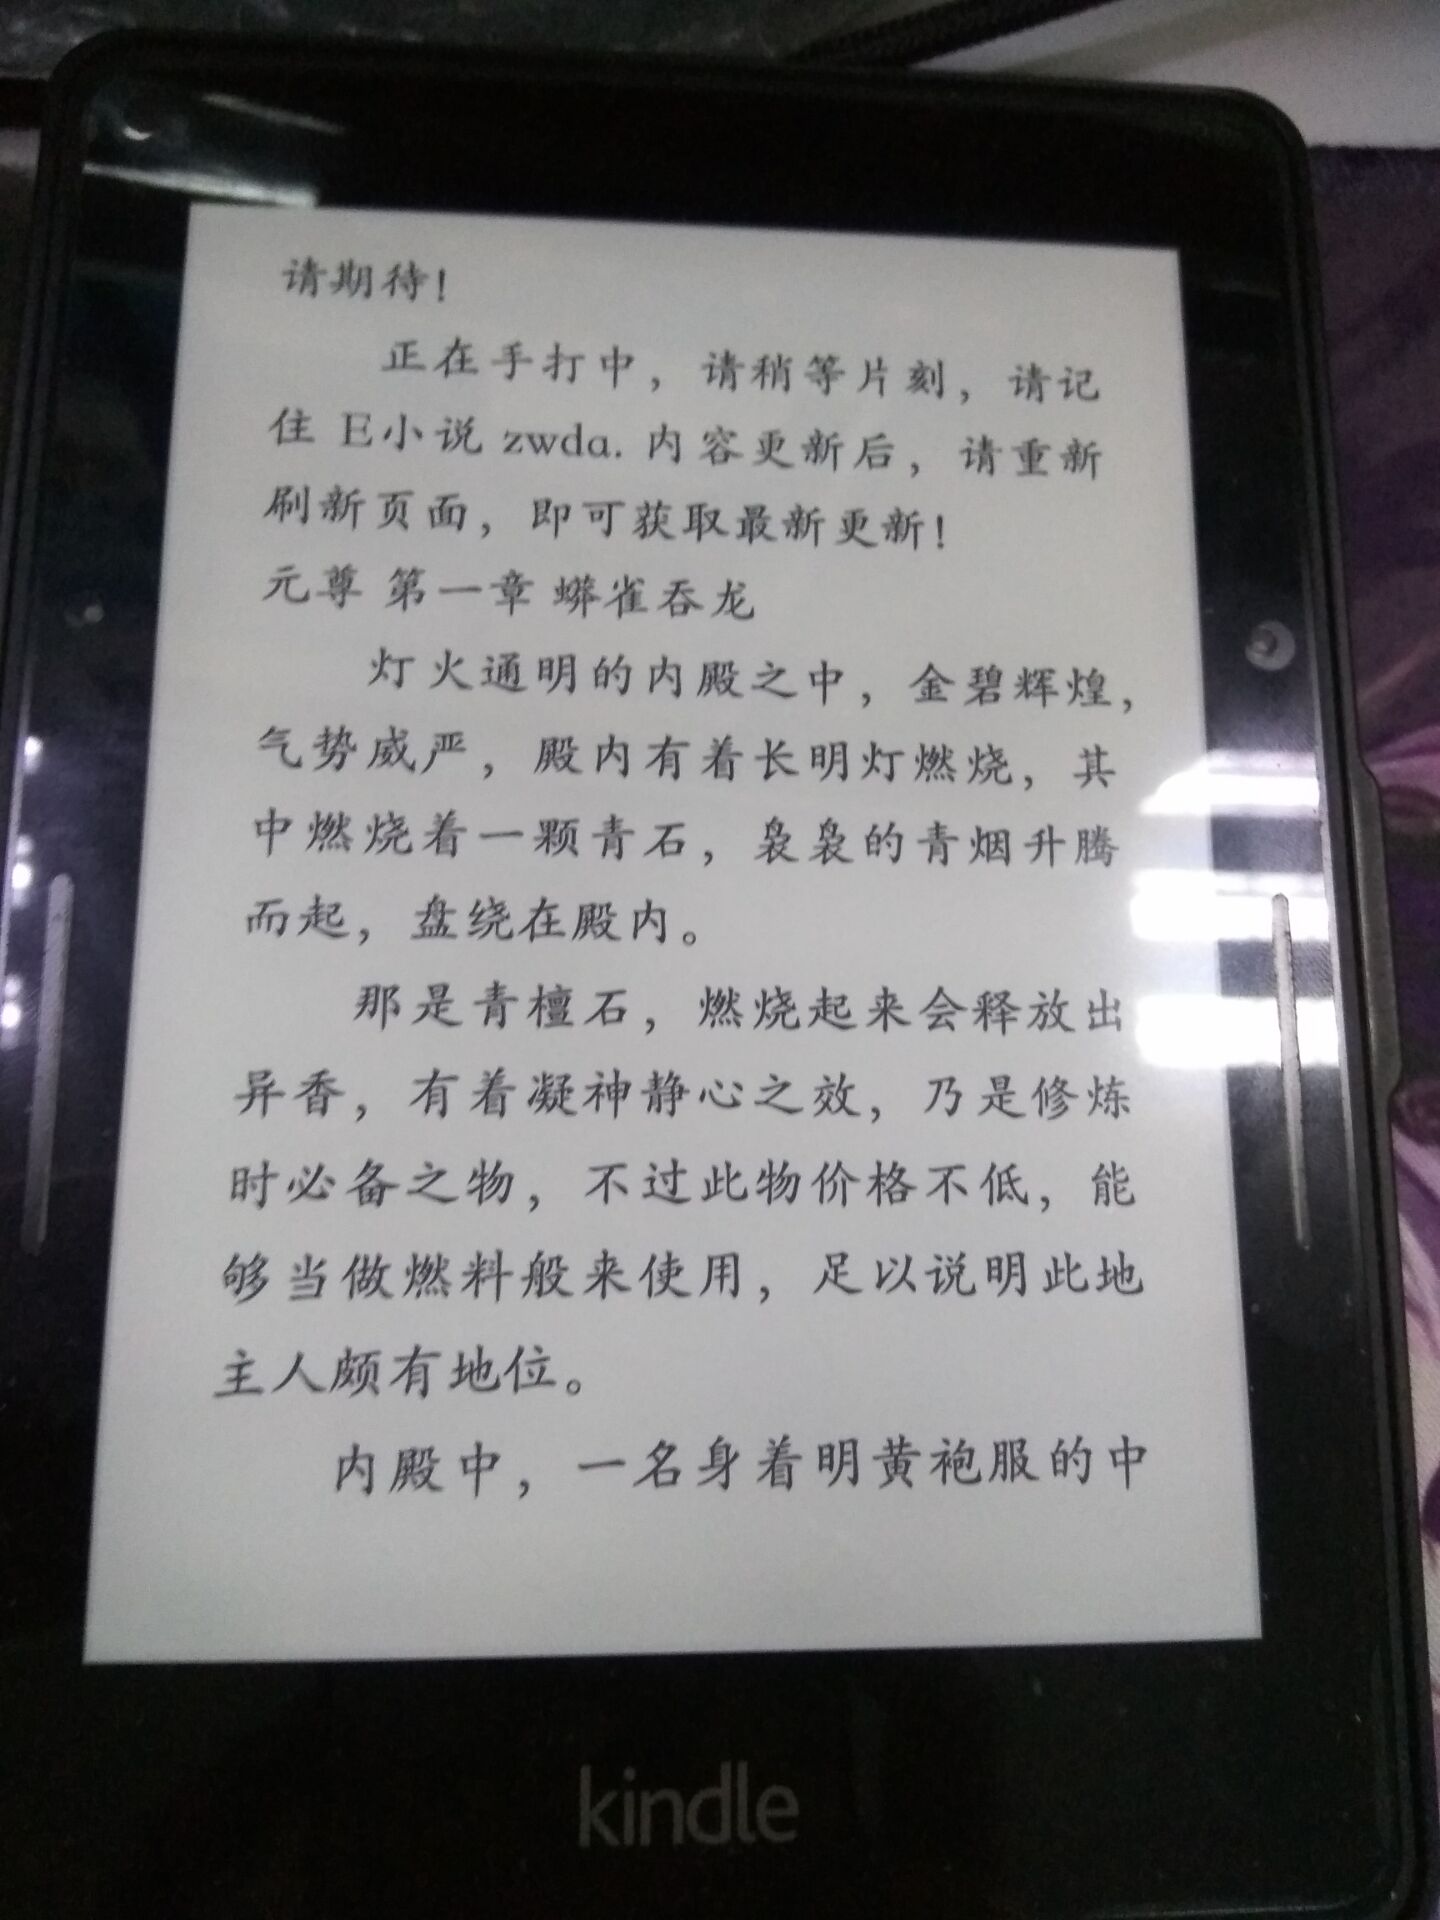 请期待！
正在手打中，请稍等片刻，请记
住 E小说 zwda. 内容更新后，请重新
刷新页面，即可获取最新更新！
元尊 第一章 蟒雀吞龙
灯火通明的内殿之中，金碧辉煌，
气势威严，殿内有着长明灯燃烧，其
中燃烧着一颗青石，袅袅的青烟升腾
而起，盘绕在殿内。
那是青檀石，燃烧起来会释放出
异香，有着凝神静心之效，乃是修炼
时必备之物，不过此物价格不低，能
够当做燃料般来使用，足以说明此地
主人颇有地位。
内殿中，一名身着明黄袍服的中
kindle